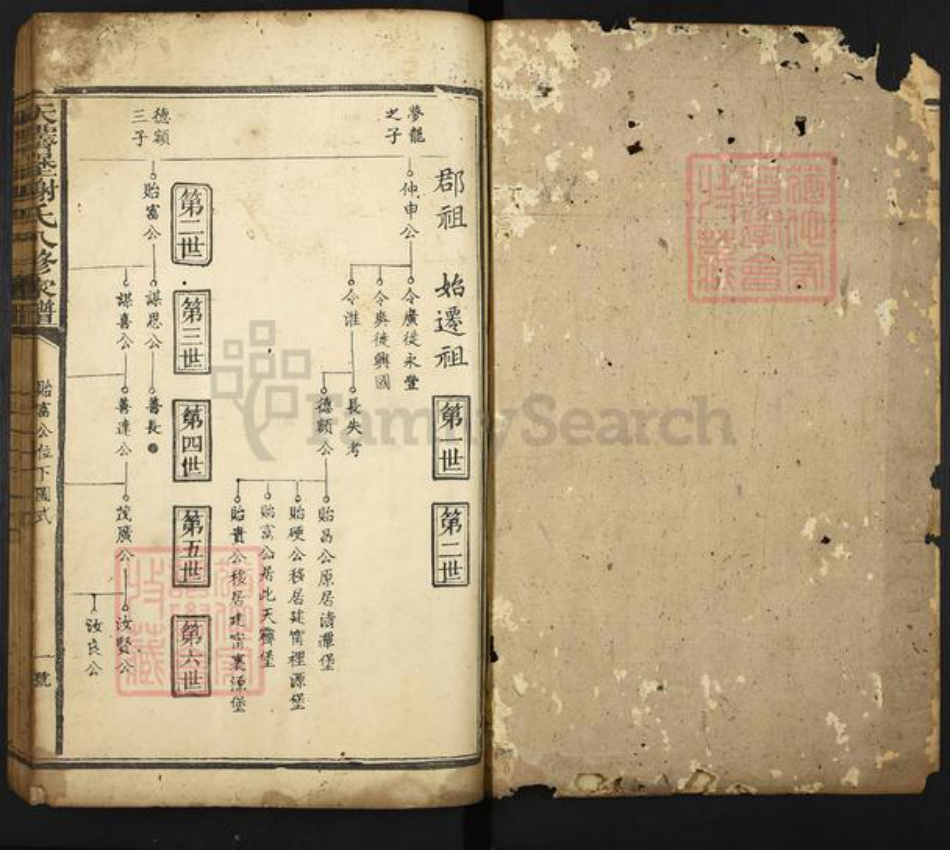 郡祖
始遷祖
第一世
第二世
夢龍
之子
仲申公
令廣徙永豐
令奥徙興國
令淮
長失考
德穎公
貽昌公原居清潭堡
貽硬公移居建甯裡源堡
貽富公居此天霽堡
貽貴公移居建甯裏源堡
第二世
第三世
第四世
第五世
第六世
德穎
三子
貽富公
謀思公
善長
謀喜公
善達公
茂廣公
汝賢公
汝良公
天霽堡謝氏八修家譜
貽富公位下圖式
號
FamilySearch